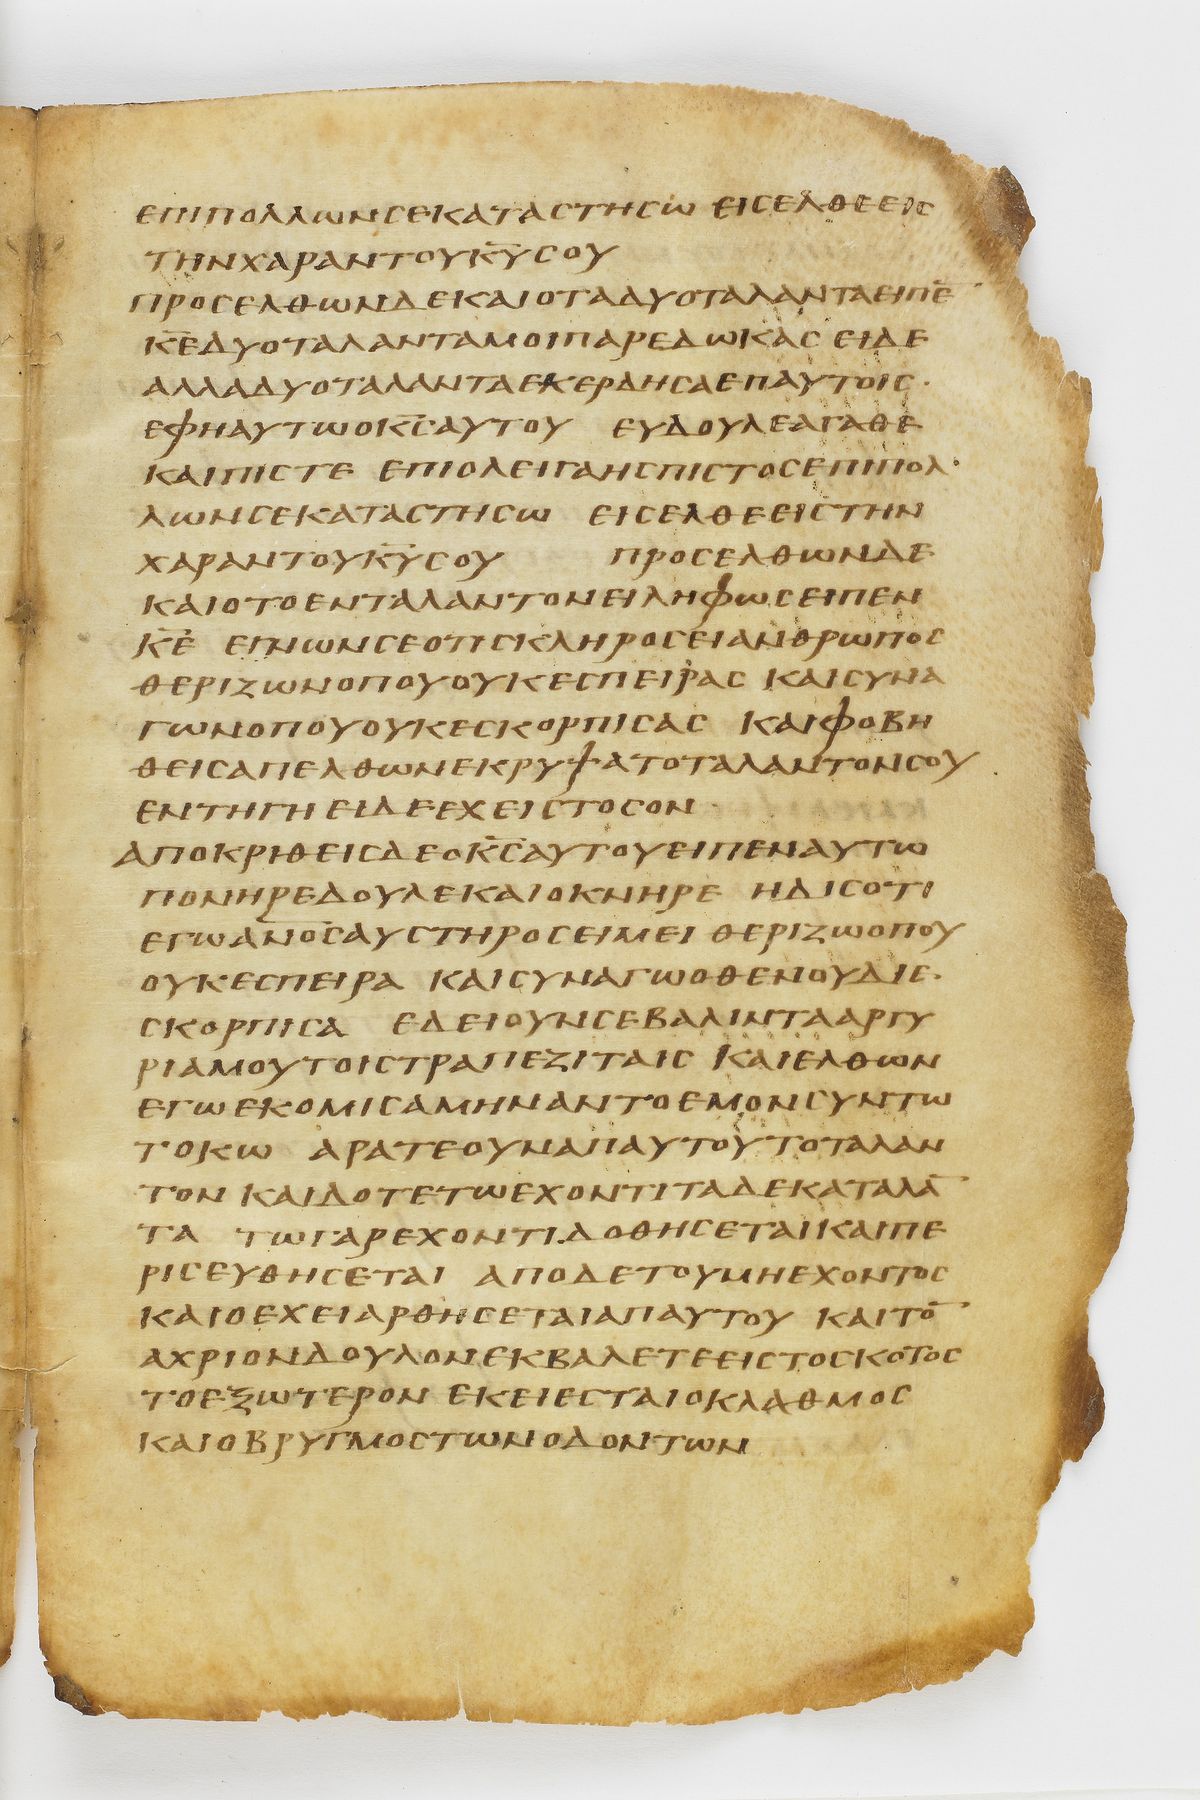 ΕΠΙΠΟΛΛΩΝϹΕΚΑΤΑϹΤΗϹΩ ΕΙϹΕΛΘΕΕΙϹ
ΤΗΝΧΑΡΑΝΤΟΥΚ̅Υ̅ϹΟΥ
ΠΡΟϹΕΛΘΩΝΔΕΚΑΙΟΤΑΔΥΟΤΑΛΑΝΤΑΕΙΠΕ̅
Κ̅Ε̅ΔΥΟΤΑΛΑΝΤΑΜΟΙΠΑΡΕΔΩΚΑϹ ΕΙΔΕ
ΑΛΛΑΔΥΟΤΑΛΑΝΤΑΕΚΕΡΔΗϹΑΕΠΑΥΤΟΙϹ·
ΕΦΗΑΥΤΩΟΚ̅Ϲ̅ΑΥΤΟΥ ΕΥΔΟΥΛΕΑΓΑΘΕ
ΚΑΙΠΙϹΤΕ ΕΠΙΟΛΕΙΓΑΗϹΠΙϹΤΟϹΕΠΙΠΟΛ·
ΛΩΝϹΕΚΑΤΑϹΤΗϹΩ ΕΙϹΕΛΘΕΕΙϹΤΗΝ
ΧΑΡΑΝΤΟΥΚ̅Υ̅ϹΟΥ ΠΡΟϹΕΛΘΩΝΔΕ
ΚΑΙΟΤΟΕΝΤΑΛΑΝΤΟΝΕΙΛΗΦΩϹΕΙΠΕΝ
Κ̅Ε̅ ΕΓΝΩΝϹΕΟΤΙϹΚΛΗΡΟϹΕΙΑΝΘΡΩΠΟϹ
ΘΕΡΙΖΩΝΟΠΟΥΟΥΚΕϹΠΕΙΡΑϹ ΚΑΙϹΥΝΑ
ΓΩΝΟΠΟΥΟΥΚΕϹΚΟΡΠΙϹΑϹ ΚΑΙΦΟΒΗ
ΘΕΙϹΑΠΕΛΘΩΝΕΚΡΥΨΑΤΟΤΑΛΑΝΤΟΝϹΟΥ
ΕΝΤΗΓΗΕΙΔΕΕΧΕΙϹΤΟϹΟΝ·
ΑΠΟΚΡΙΘΕΙϹΔΕΟΚ̅Ϲ̅ΑΥΤΟΥΕΙΠΕΝΑΥΤΩ
ΠΟΝΗΡΕΔΟΥΛΕΚΑΙΟΚΝΗΡΕ ΗΔΙϹΟΤΙ
ΕΓΩΑ̅Ν̅Ο̅Ϲ̅ΑΥϹΤΗΡΟϹΕΙΜΕΙ ΘΕΡΙΖΩΟΠΟΥ
ΟΥΚΕϹΠΕΙΡΑ ΚΑΙϹΥΝΑΓΩΟΘΕΝΟΥΔΙΕ·
ϹΚΟΡΠΙϹΑ ΕΔΕΙΟΥΝϹΕΒΑΛΙΝΤΑΑΡΓΥ
ΡΙΑΜΟΥΤΟΙϹΤΡΑΠΕΖΙΤΑΙϹ ΚΑΙΕΛΘΩΝ
ΕΓΩΕΚΟΜΙϹΑΜΗΝΑΝΤΟΕΜΟΝϹΥΝΤΩ
ΤΟΚΩ ΑΡΑΤΕΟΥΝΑΠΑΥΤΟΥΤΟΤΑΛΑΝ
ΤΟΝ ΚΑΙΔΟΤΕΤΩΕΧΟΝΤΙΤΑΔΕΚΑΤΑΛΑ̅
ΤΑ ΤΩΓΑΡΕΧΟΝΤΙΔΟΘΗϹΕΤΑΙΚΑΙΠΕ
ΡΙϹΕΥΘΗϹΕΤΑΙ ΑΠΟΔΕΤΟΥΜΗΕΧΟΝΤΟϹ
ΚΑΙΟΕΧΕΙΑΡΘΗϹΕΤΑΙΑΠΑΥΤΟΥ ΚΑΙΤΟ̅
ΑΧΡΙΟΝΔΟΥΛΟΝΕΚΒΑΛΕΤΕΕΙϹΤΟϹΚΟΤΟϹ
ΤΟΕΞΩΤΕΡΟΝ ΕΚΕΙΕϹΤΑΙΟΚΛΑΘΜΟϹ
ΚΑΙΟΒΡΥΓΜΟϹΤΩΝΟΔΟΝΤΩΝ